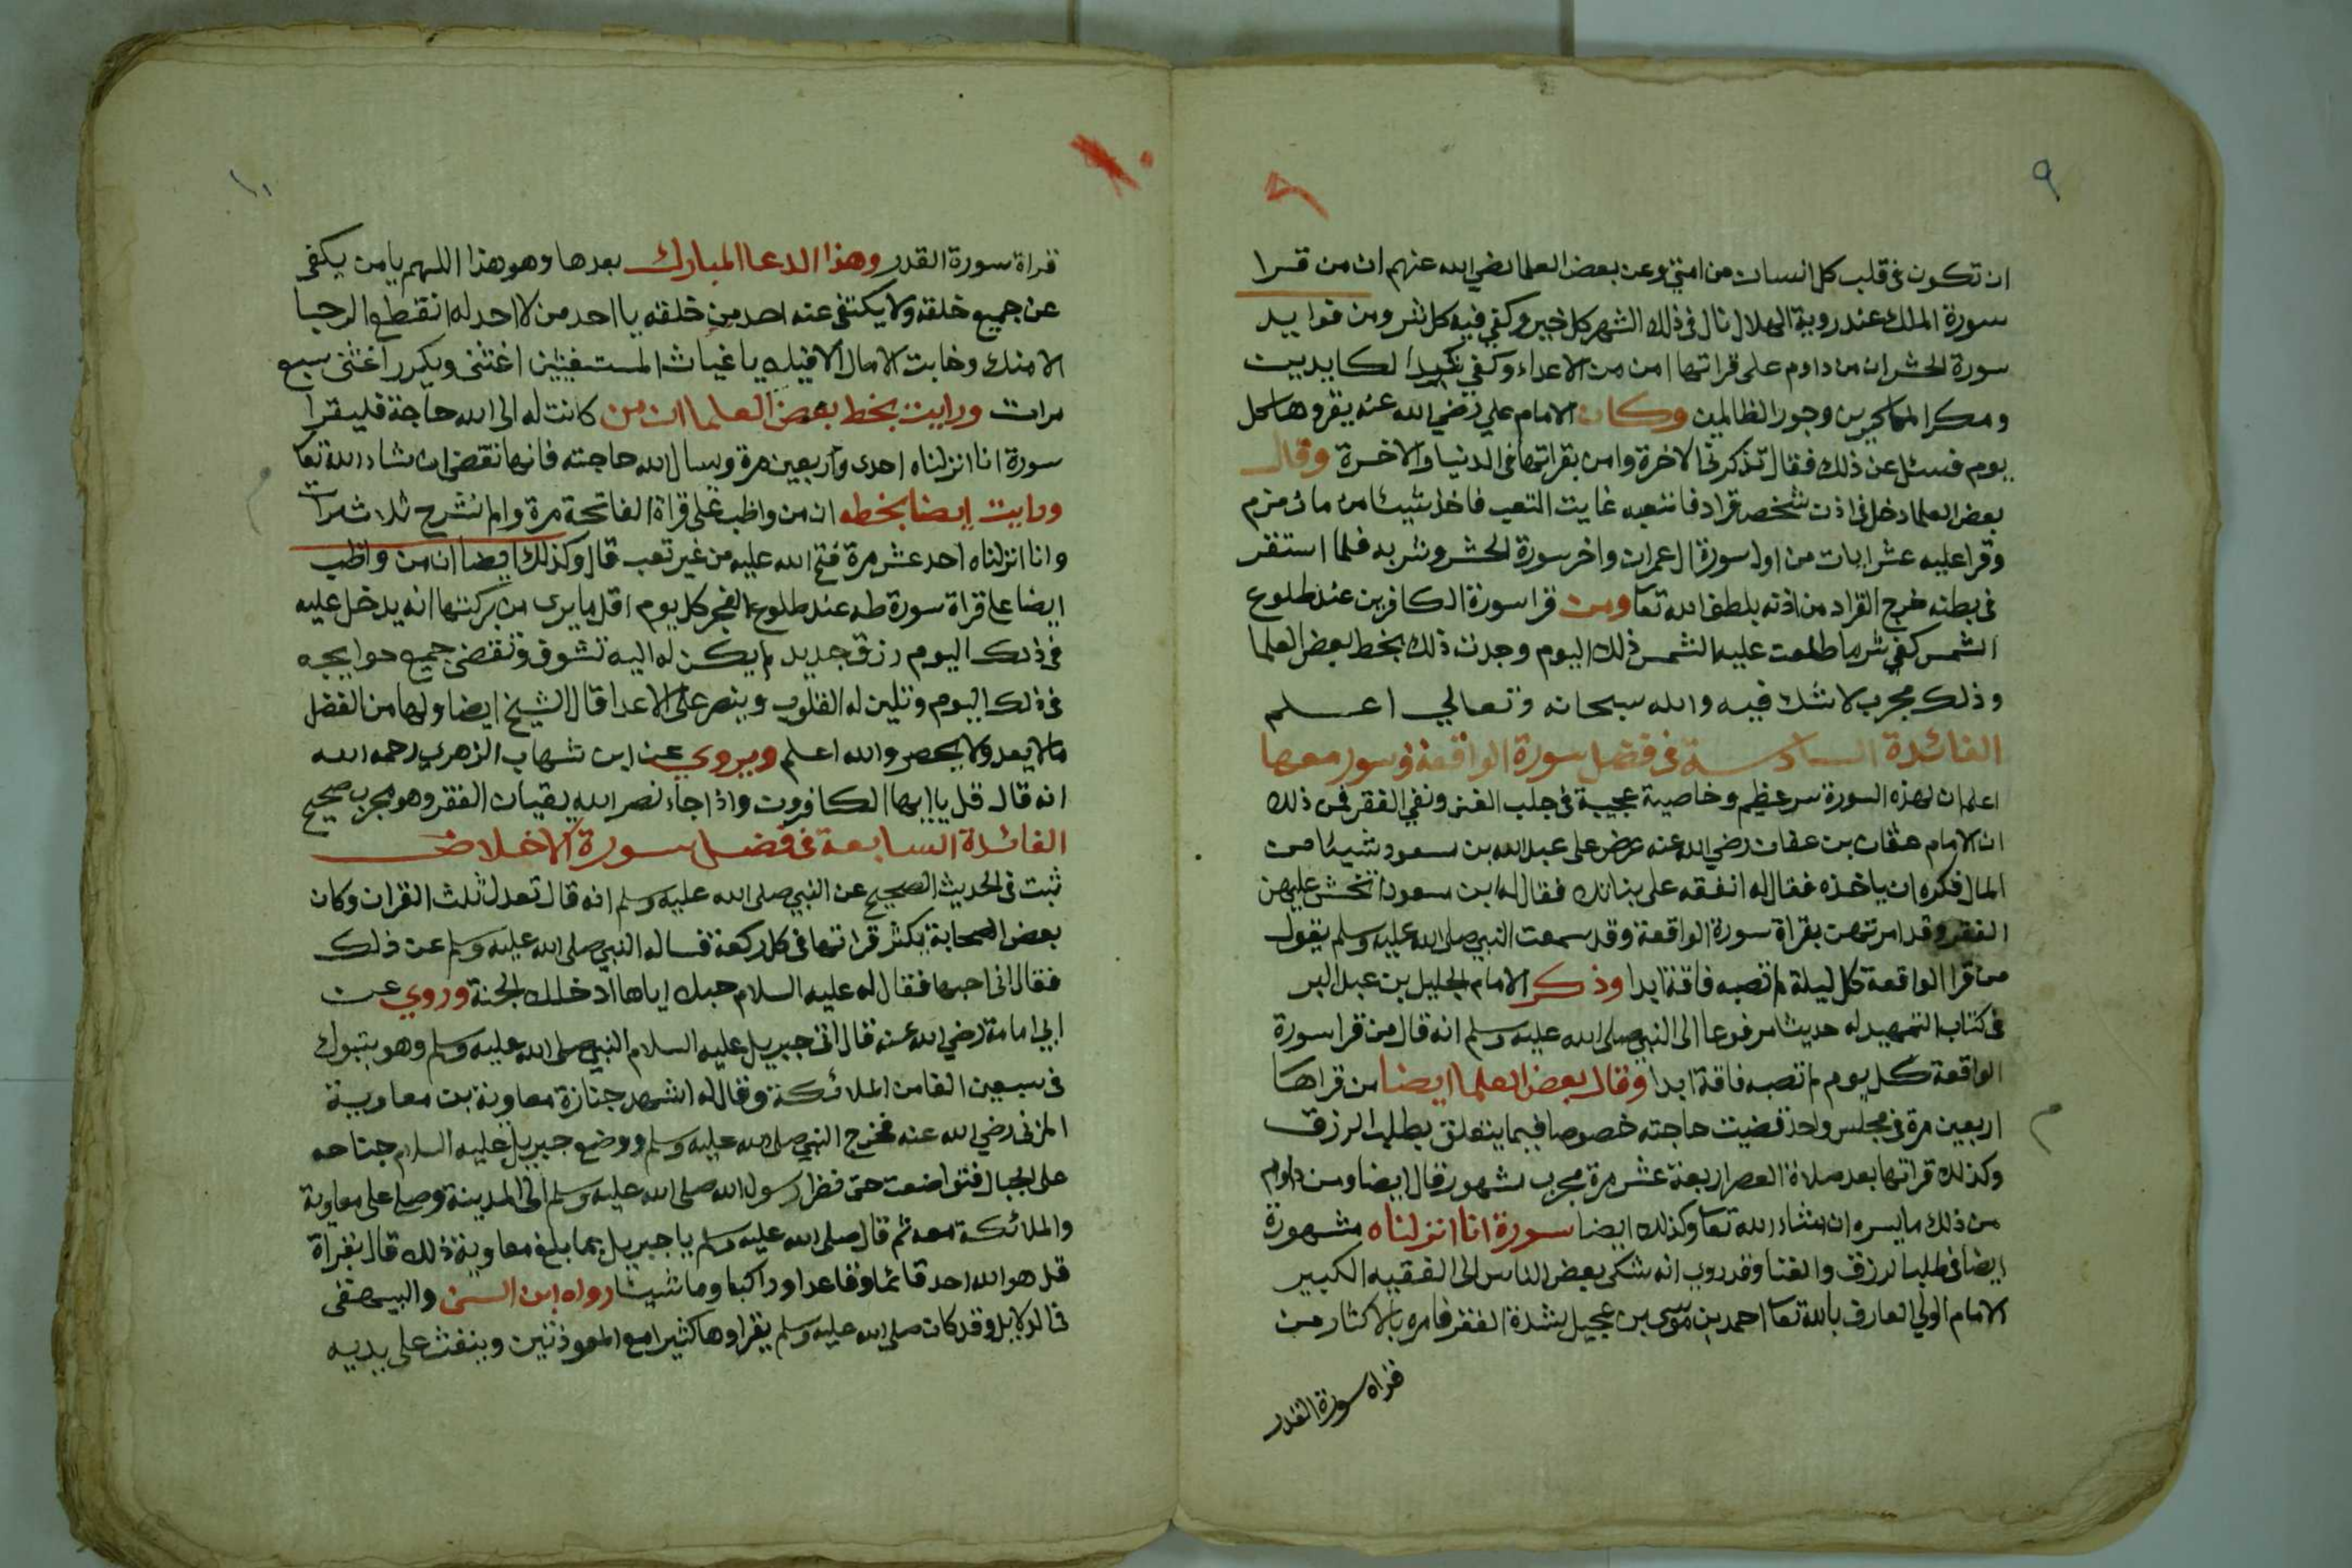 ٩
ان تكون فى قلب كل انسان من امتي وعن بعض العلما رضي الله عنهم ان من قرا
سورة الملك عند روية الهلال نال فى ذلك الشهر كل خير وكفي فيه كل شر ومن فوايد
سورة الحشر ان من داوم على قراتها امن من الاعداء وكفي كيد الكايدين
ومكر الماكرين وجور الظالمين وكان الامام علي رضي الله عنه يقروها كل
يوم فسئل عن ذلك فقال تذكرني الاخرة وامن بقراتها فى الدنيا والاخرة وقال
بعض العلما دخل فى اذن شخص قراد فاتعبه غايت التعب فاخذ شيئا من ماء زمزم
وقرا عليه عشر ايات من اول سورة ال عمران واخر سورة الحشر وشربه فلما استقر
فى بطنه خرج القراد من اذنه بلطف الله تعا ومن قرا سورة الكافرين عند طلوع
الشمس كفي شر ما طلعت عليه الشمس ذلك اليوم وجدت ذلك بخط بعض العلما
وذلك مجرب لا شك فيه والله سبحانه وتعالي اعلم
الفائدة السادسة فى فضل سورة الواقعة وسور معها
اعلم ان لهذه السورة سر عظيم وخاصية عجيبة فى جلب الغنى ونفي الفقر فمن ذلك
ان الامام عثمان بن عفان رضي الله عنه عرض على عبد الله بن مسعود شيئا من
المال فكره ان ياخذه فقال له انفقه على بناتك فقال له ابن مسعود اتخشى عليهن
الفقر وقد امرتهن بقراة سورة الواقعة وقد سمعت النبي صلى الله عليه وسلم يقول
من قرا الواقعة كل ليلة لم تصبه فاقة ابدا وذكر الامام الجليل بن عبد البر
فى كتاب التمهيد له حديثا مرفوعا الى النبي صلى الله عليه وسلم انه قال من قرا سورة
الواقعة كل يوم لم تصبه فاقة ابدا وقال بعض العلما ايضا من قراها
اربعين مرة فى مجلس واحد قضيت حاجته خصوصا فيما يتعلق بطلب الرزق
وكذلك قراتها بعد صلاة العصر اربعة عشر مرة مجرب مشهور قال ايضا ومن داوم
من ذلك ما يسره ان شاء الله تعا وكذلك ايضا سورة انا انزلناه مشهورة
ايضا فى طلب الرزق والغنا وقد روي انه شكى بعض الناس الى الفقيه الكبير
الامام الولي العارف بالله تعا احمد بن موسى بن عجيل بشدة الفقر فامره بالاكثار من
قراة سورة القدر
١١
قراة سورة القدر وهذا الدعا المبارك بعدها وهو هذا اللهم يا من يكفى
عن جميع خلقه ولا يكتفى عنه احد من خلقه يا احد من لا احد له انقطع الرجا
الا منك وخابت الامال الا فيك يا غياث المستغيثين اغثنى ويكرر اغثنى سبع
مرات ورايت بخط بعض العلما ان من كانت له الى الله حاجة فليقرا
سورة انا انزلناه احدى واربعين مرة ويسال الله حاجته فانها تقضى ان شاء الله تعا
ورايت ايضا بخطه ان من واظب على قراة الفاتحة مرة والم نشرح ثلاث مرات
وانا انزلناه احد عشر مرة فتح الله عليه من غير تعب قال وكذلك ايضا ان من واظب
ايضا على قراة سورة طه عند طلوع الفجر كل يوم اقل ما يرى من بركتها انه يدخل عليه
فى ذلك اليوم رزق جديد لم يكن له اليه تشوق وتقضى جميع حوايجه
فى ذلك اليوم وتلين له القلوب وينصر على الاعدا قال الشيخ ايضا ولها من الفضل
ما لا يعد ولا يحصر والله اعلم ويروي عن ابن شهاب الزهري رحمه الله
انه قال قل يا ايها الكافرون واذا جاء نصر الله يقيان الفقر وهو مجرب صحيح
الفائدة السابعة فى فضل سورة الاخلاص
ثبت فى الحديث الصحيح عن النبي صلى الله عليه وسلم انه قال تعدل ثلث القران وكان
بعض الصحابة يكثر قراتها فى كل ركعة فساله النبي صلى الله عليه وسلم عن ذلك
فقال انى احبها فقال له عليه السلام حبك اياها ادخلك الجنة وروي عن
ابي امامة رضي الله عنه قال اتى جبريل عليه السلام النبي صلى الله عليه وسلم وهو بتبوك
فى سبعين الفا من الملائكة وقال له اشهد جنازة معاوية بن معاوية
المزنى رضي الله عنه فخرج النبي صلى الله عليه وسلم ووضع جبريل عليه السلام جناحه
على الجبال فتواضعت حتى نظر رسول الله صلى الله عليه وسلم الى المدينة وصلى على معاوية
والملائكة معه ثم قال صلى الله عليه وسلم يا جبريل بما بلغ معاوية ذلك قال بقراة
قل هو الله احد قائما وقاعدا وراكبا وماشيئا رواه ابن السنى والبيهقى
فى الدلايل وقد كان صلى الله عليه وسلم يقراوها كثيرا مع المعوذتين وينفث على يديه